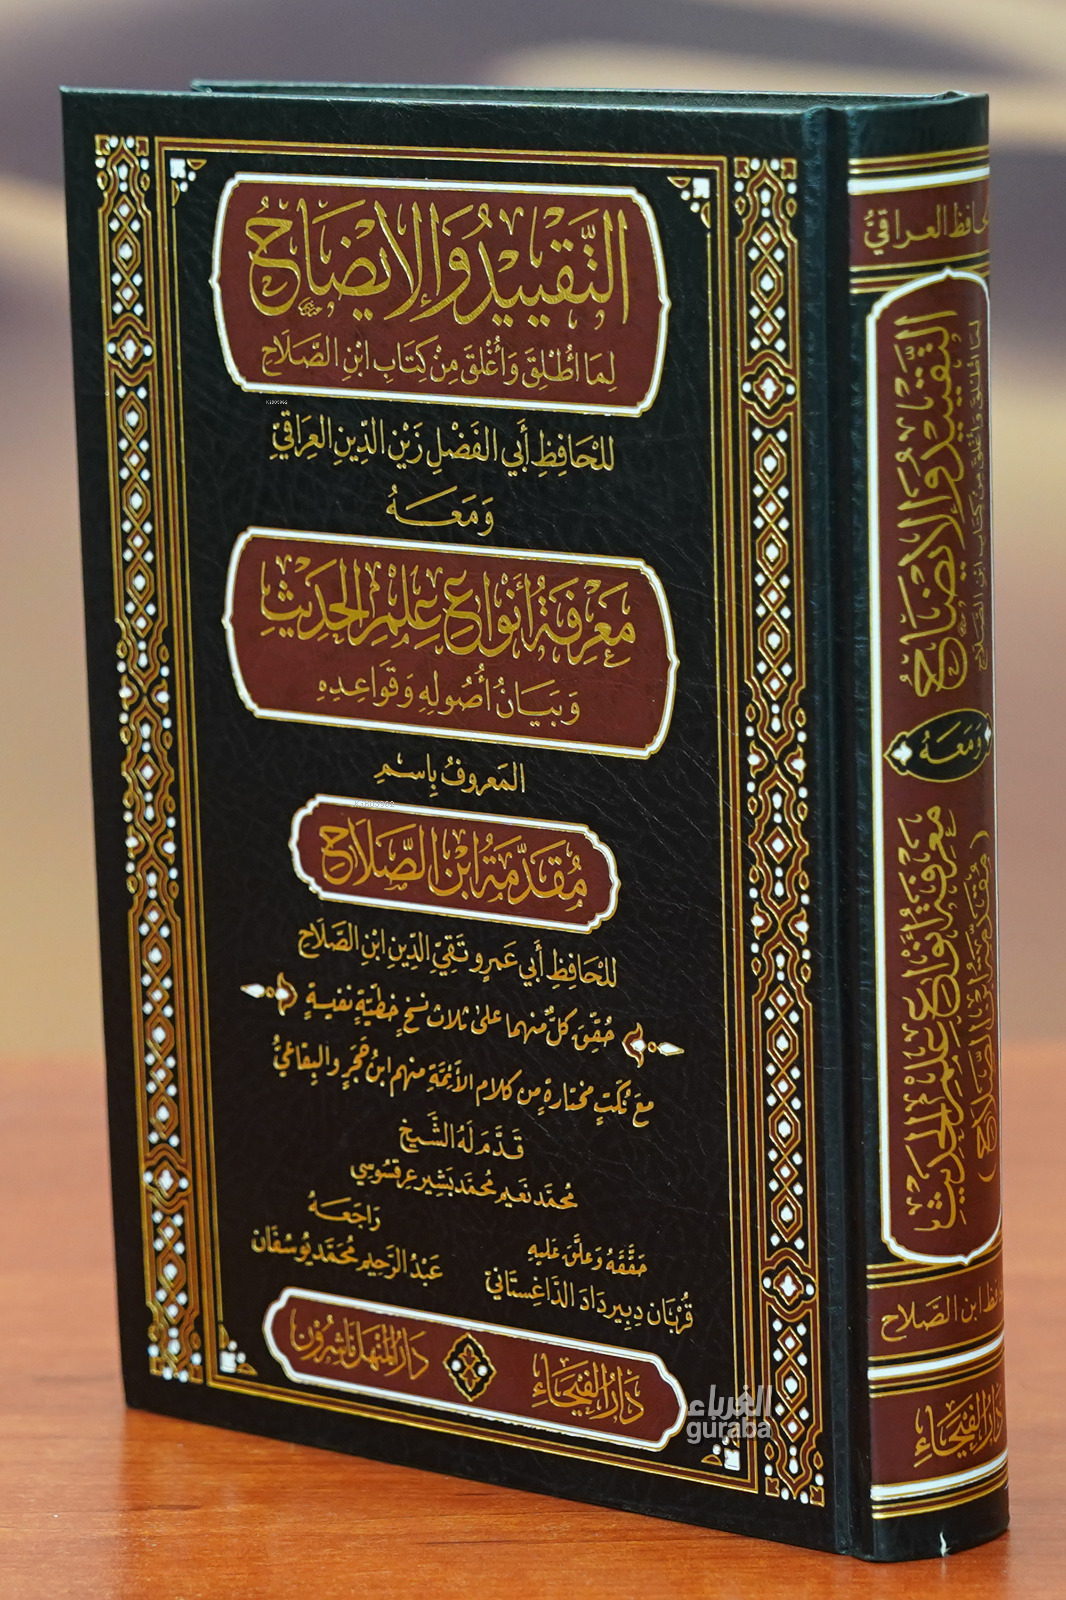 التَّقْيِيدُ وَالإِيضَاحُ
لِمَا أُطْلِقَ وَأُغْلِقَ مِنْ كِتَابِ ابْنِ الصَّلَاحِ
لِلْحَافِظِ أَبِي الفَضْلِ زَيْنِ الدِّينِ العِرَاقِيِّ
وَمَعَهُ
مَعْرِفَةُ أَنْوَاعِ عِلْمِ الحَدِيثِ
وَبَيَانُ أُصُولِهِ وَقَوَاعِدِهِ
المَعْرُوفُ بِاسْمِ
مُقَدِّمَةُ ابْنِ الصَّلَاحِ
لِلْحَافِظِ أَبِي عَمْرٍو تَقِيِّ الدِّينِ ابْنِ الصَّلَاحِ
حُقِّقَ كُلٌّ منهما على ثلاث نسخٍ خطيّةٍ نفيسةٍ
مع نُكَتٍ مختارةٍ من كلام الأئمّةِ منهم ابنُ حَجَرٍ والبِقاعيُّ
قَدَّمَ لَهُ الشَّيْخ
مُحمَّد نعيم مُحمَّد بَشِير عرقسُوسي
رَاجَعَهُ
عَبْدُ الرَّحِيم مُحَمَّد يُوسُفَان
حَقَّقَهُ وَعَلَّقَ عَلَيهِ
قُرْبَان دِبِيردَاد الدَّاغِستَانيّ
دَارُ الفَيْحَاءِ
دَارُ المَنْهَل نَاشِرُون
الغرباء
guraba
حافظ العراقيُّ
التَّقْيِيدُ وَالإِيضَاحُ
لِمَا أُطْلِقَ وَأُغْلِقَ مِنْ كِتَابِ ابْنِ الصَّلَاحِ
وَمَعَهُ
مَعْرِفَةُ أَنْوَاعِ عِلْمِ الحَدِيثِ
(مُقَدِّمَةُ ابْنِ الصَّلَاحِ)
ابن الصَّلاح
دَارُ الفَيْحَاءِ